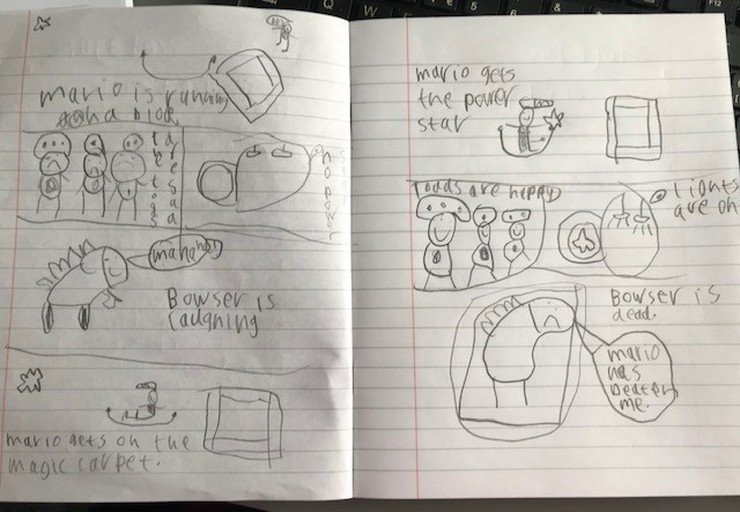 mario is running
to a block
the tods are sad
no power
mahaha!
Bowser is
laughing
mario gets on the
magic carpet.
mario gets
the power
star
Toads are happy
lights
are on
Bowser is
dead.
mario
has
beaten
me.